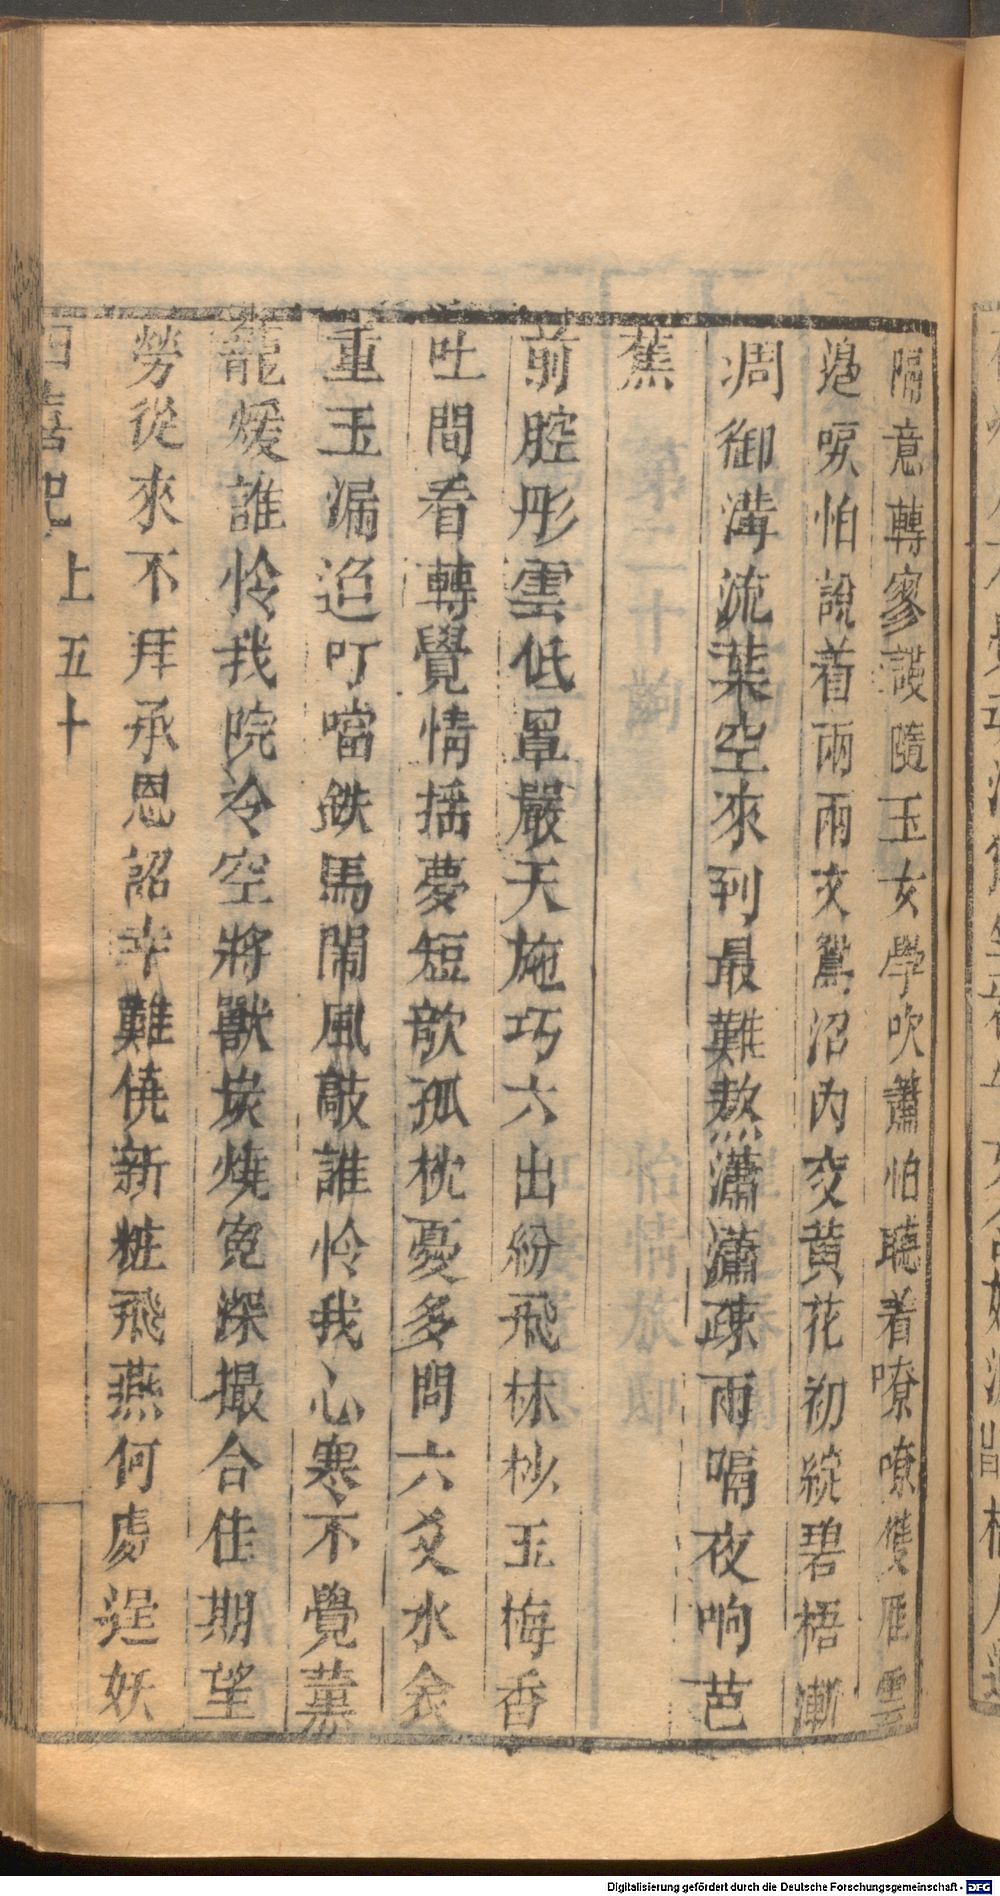 隔意轉寥謖隨玉女學吹蕭怕聽着嘹嘹雙雁雲
邉唳怕說着兩兩交鴛沼內交黄花初綻碧梧漸
凋御溝流葉空來到最難熬瀟瀟疎雨嗝夜响芭
蕉
前腔彤雲低罩嚴天施巧六出紛飛林杪玉梅香
吐間看轉覺情揺夢短欹孤枕憂多問六爻水衾
重玉漏迢叮噹鉄馬閙風敲誰怜我心寒不覺薰
籠煖誰怜我院冷空將獸炭燒寃深撮合佳期望
勞從來不拜承恩詔幸難僥新粧飛燕何處逞妖
四喜記 上 五十
Digitalisierung gefördert durch die Deutsche Forschungsgemeinschaft - DFG